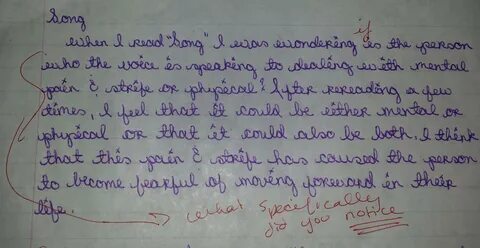 Song
if
When I read "Song" I was wondering is the person
who the voice is speaking to dealing with mental
pain & strife or physical? After rereading a few
times, I feel that it could be either mental or
physical or that it could also be both. I think
that this pain & strife has caused the person
to become fearful of moving foreward in their
life.
What specifically
did you notice